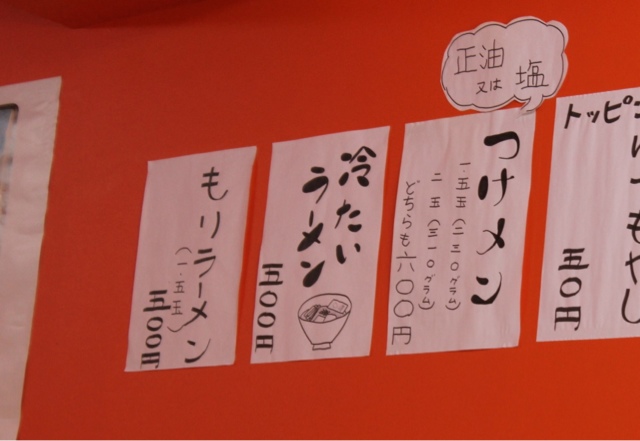 正油
又は 塩
トッピ
もやし
五〇円
つけメン
一.五五(二三〇グラム)
二 五(三一〇グラム)
どちらも六〇〇円
冷たい
ラーメン
五〇〇円
もりラーメン
(一.五玉)
五〇〇円